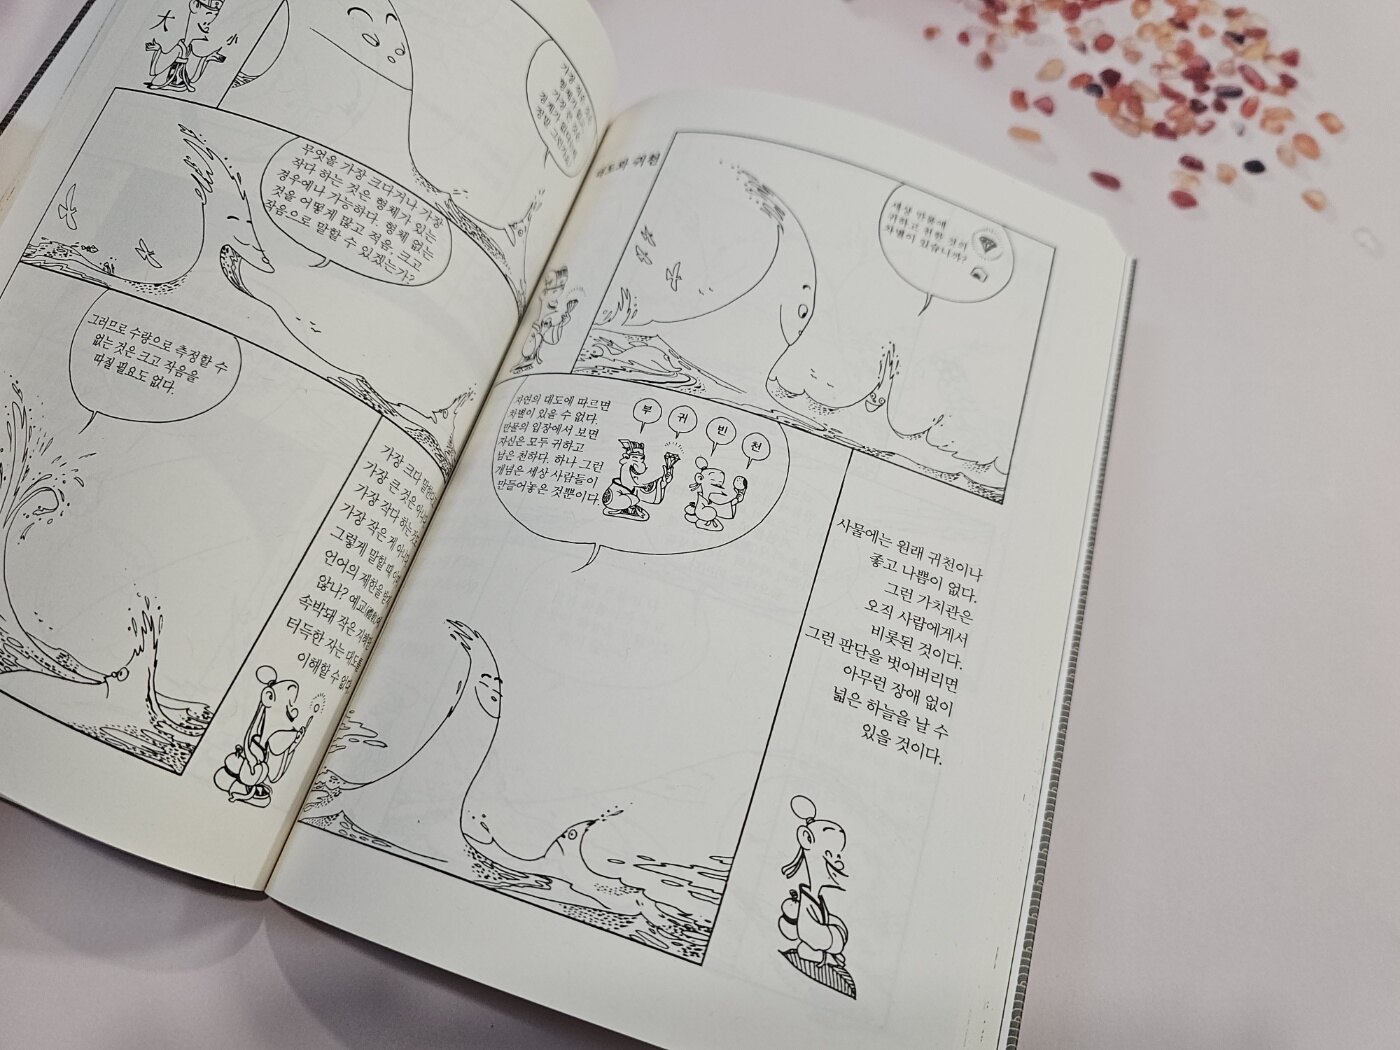 大
小
가장
무엇을 가장 크다거나 가장
작다 하는 것은 형체가 있는
경우에나 가능하다. 형체 없는
것을 어떻게 많고 적음, 크고
작음으로 말할 수 있겠는가?
그러므로 수량으로 측정할 수
없는 것은 크고 작음을
따질 필요도 없다.
가장 크다 말한다
가장 큰 것은 아니
가장 작다 하는
가장 작은 게 아니
그렇게 말할 때
언어의 제한을
않나? 예교
속박돼 작은
터득한 자는 대도를
이해할 수 없다
귀천
세상 만물에
귀하고 천한 것이
차별이 있습니까?
자연의 대도에 따르면
차별이 있을 수 없다.
만물의 입장에서 보면
자신은 모두 귀하고
남은 천하다. 하나 그런
개념은 세상 사람들이
만들어놓은 것뿐이다.
부
귀
빈
천
사물에는 원래 귀천이나
좋고 나쁨이 없다.
그런 가치관은
오직 사람에게서
비롯된 것이다.
그런 판단을 벗어버리면
아무런 장애 없이
넓은 하늘을 날 수
있을 것이다.